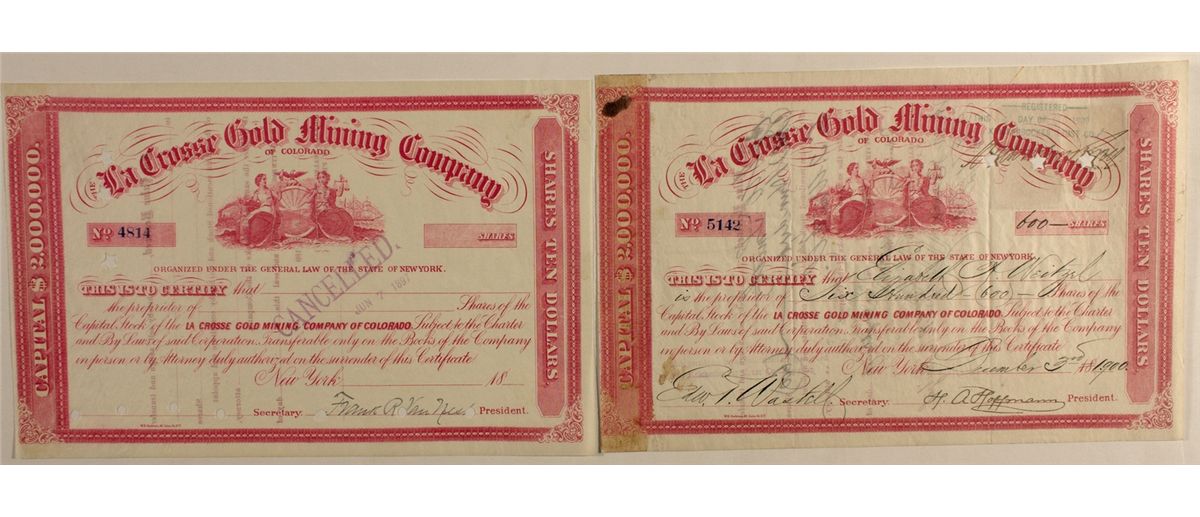 THE La Crosse Gold Mining Company
OF COLORADO.
CAPITAL $ 2,000,000.
SHARES TEN DOLLARS.
No 4814
SHARES
ORGANIZED UNDER THE GENERAL LAW OF THE STATE OF NEW YORK.
CANCELED.
JUN 7 1897
THIS IS TO CERTIFY that
the proprietor of Shares of the
Capital Stock of the LA CROSSE GOLD MINING COMPANY OF COLORADO. Subject to the Charter
and By Laws of said Corporation, Transferable only on the Books of the Company
in person or by Attorney duly authorized on the surrender of this Certificate
New York 18
Secretary. Frank R. Van Nes President.
THE La Crosse Gold Mining Company
OF COLORADO.
CAPITAL $ 2,000,000.
SHARES TEN DOLLARS.
REGISTERED
DAY OF
No 5142
600 SHARES
ORGANIZED UNDER THE GENERAL LAW OF THE STATE OF NEW YORK.
THIS IS TO CERTIFY that Elizabeth A. Weitzel
is the proprietor of Six Hundred - 600 - Shares of the
Capital Stock of the LA CROSSE GOLD MINING COMPANY OF COLORADO. Subject to the Charter
and By Laws of said Corporation, Transferable only on the Books of the Company
in person or by Attorney duly authorized on the surrender of this Certificate
New York December 3rd 1900
Secretary. H. A. Hoffmann President.